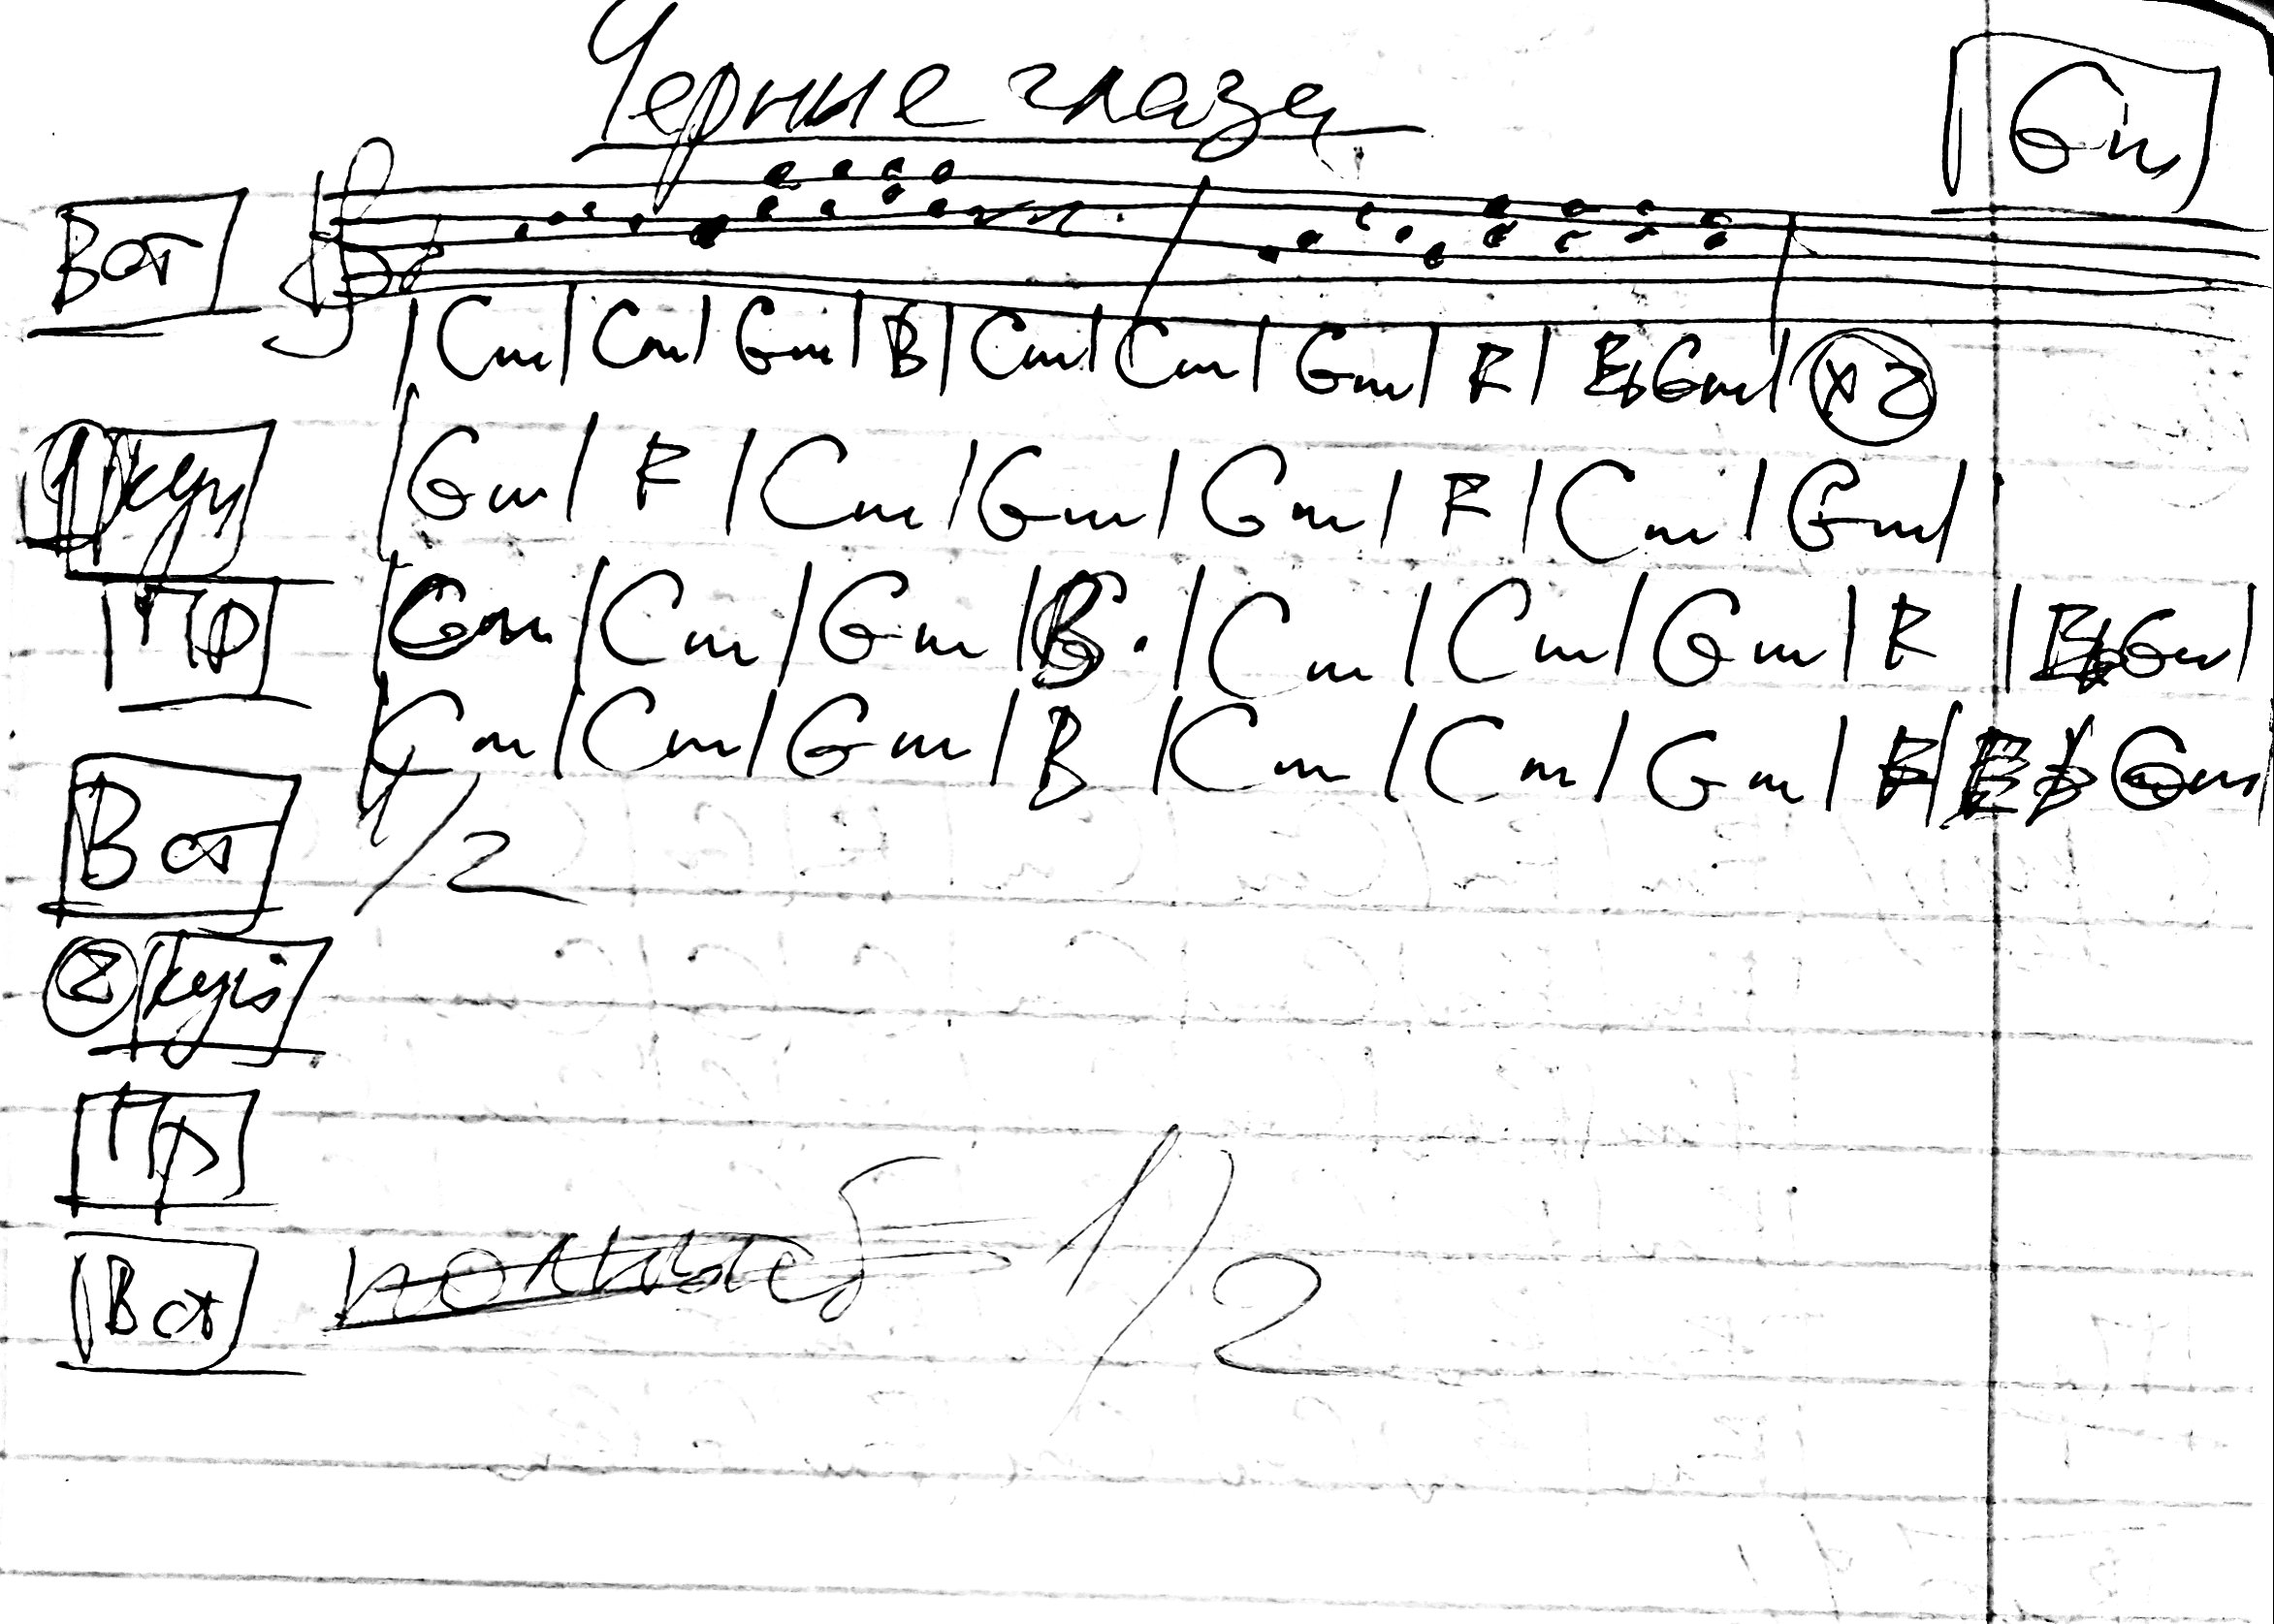 Черные глаза
Gm
Вст
| Cm | Cm | Gm | B | Cm | Cm | Gm | F | Eb Gm | x2
1 куп | Gm | F | Cm | Gm | Gm | F | Cm | Gm |
Пр | Cm | Cm | Gm | B | Cm | Cm | Gm | F | Gm |
| Cm | Cm | Gm | B | Cm | Cm | Gm | F | Gm |
Вст 1/2
2 куп
Пр
Вст 1/2